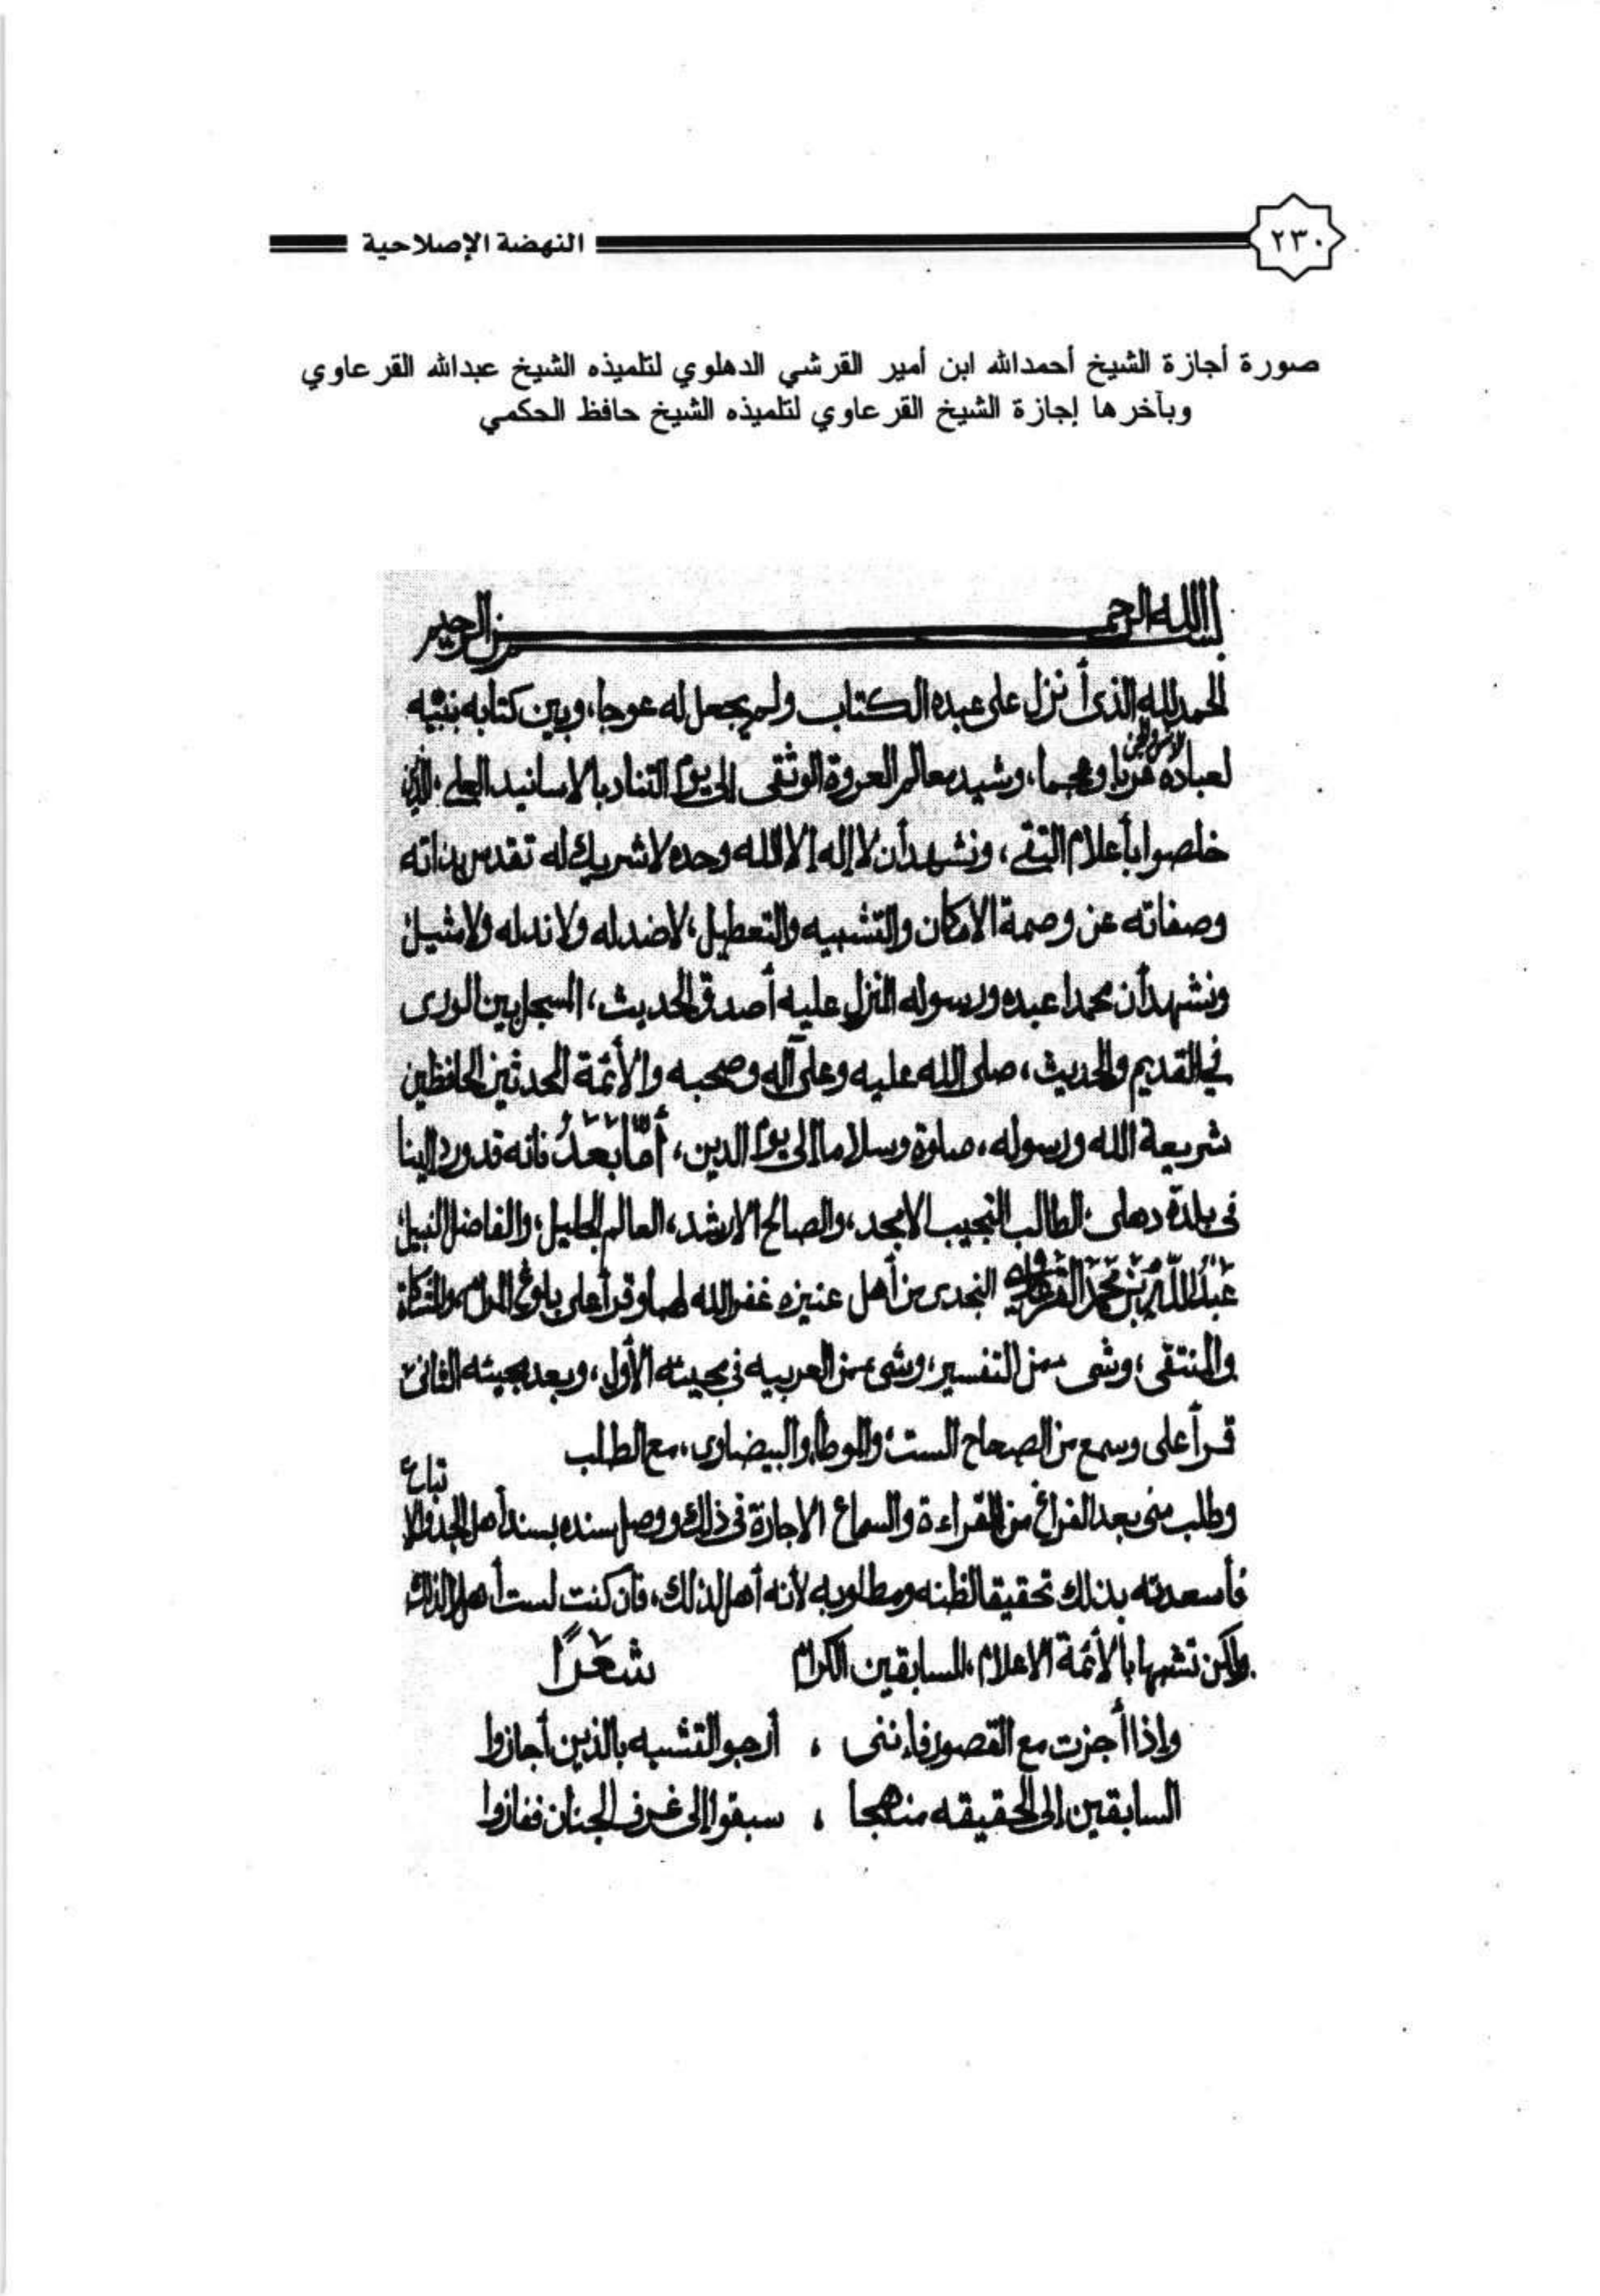 ٢٣٠
النهضة الإصلاحية
صورة أجازة الشيخ أحمدالله ابن أمير القرشي الدهلوي لتلميذه الشيخ عبدالله القرعاوي
وبآخرها إجازة الشيخ القرعاوي لتلميذه الشيخ حافظ الحكمي
بسم الله الرحمن الرحيم
الحمد لله الذى أنزل على عبده الكتاب ولم يجعل له عوجا، وبين كتابه بنبيه
لعباده عربا وعجما، وشيد معالم العروة الوثقى إلى يوم التناد بالاسانيد العلى، الذين
خلصوا بأعلام التقى، ونشهد أن لا إله إلا الله وحده لا شريك له تقدس بذاته
وصفاته عن وصمة الامكان والتشبيه والتعطيل، لا ضد له ولا ند له ولا مثيل
ونشهد أن محمدا عبده ورسوله المنزل عليه أصدق الحديث، المبجل بين الورى
في القديم والحديث، صلى الله عليه وعلى آله وصحبه والأئمة المحدثين الحافظين
شريعة الله ورسوله، صلوة وسلاما إلى يوم الدين، أمّا بَعْدُ فانه قد ورد إلينا
فى بلدة دهلى الطالب النجيب الامجد، والصالح الارشد، العالم الجليل، والفاضل النبيل
عَبْدُ اللّٰهِ بْنِ مُحَمَّدَ القرعاوى النجدى من أهل عنيزه غفر الله لهما وقرأ على بلوغ المرام، والمشكاة
والمنتقى، وشىء من التفسير، وشىء من العربيه فى مجيئه الأول، وبعد مجيئه الثانى
قرأ على وسمع من الصحاح الست، والموطأ، والبيضاوى، مع الطلب
وطلب منى بعد الفراغ من القراءة والسماع الاجازة فى ذلك ووصل سنده بسند أهل الجد والاتباع
فأسعدته بذلك تحقيقا لظنه ومطلوبه لأنه أهل لذلك، فان كنت لست أهلا لذلك
ولكن تشبها بالأئمة الاعلام، السابقين الكرام شعرًا
وإذا أجزت مع القصور فإننى ، أرجو التشبه بالذين أجازوا
السابقين إلى الحقيقه منهجا ، سبقوا إلى غرف الجنان ففازوا